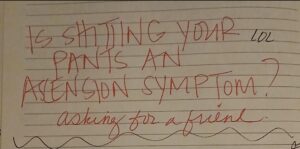 IS SHITTING YOUR LOL
PANTS AN
ASENSION SYMPTOM?
asking for a friend.